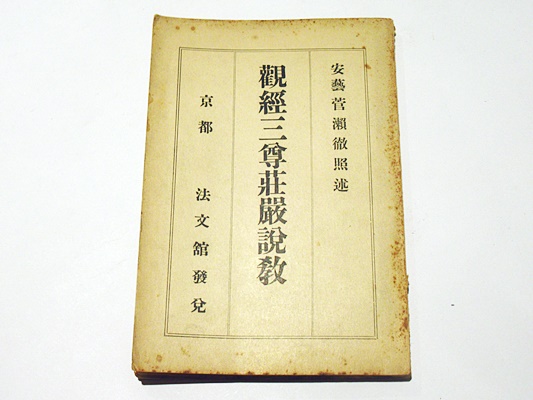 安藝 菅瀨徹照述
觀經三尊莊嚴說敎
京都 法文館發兌